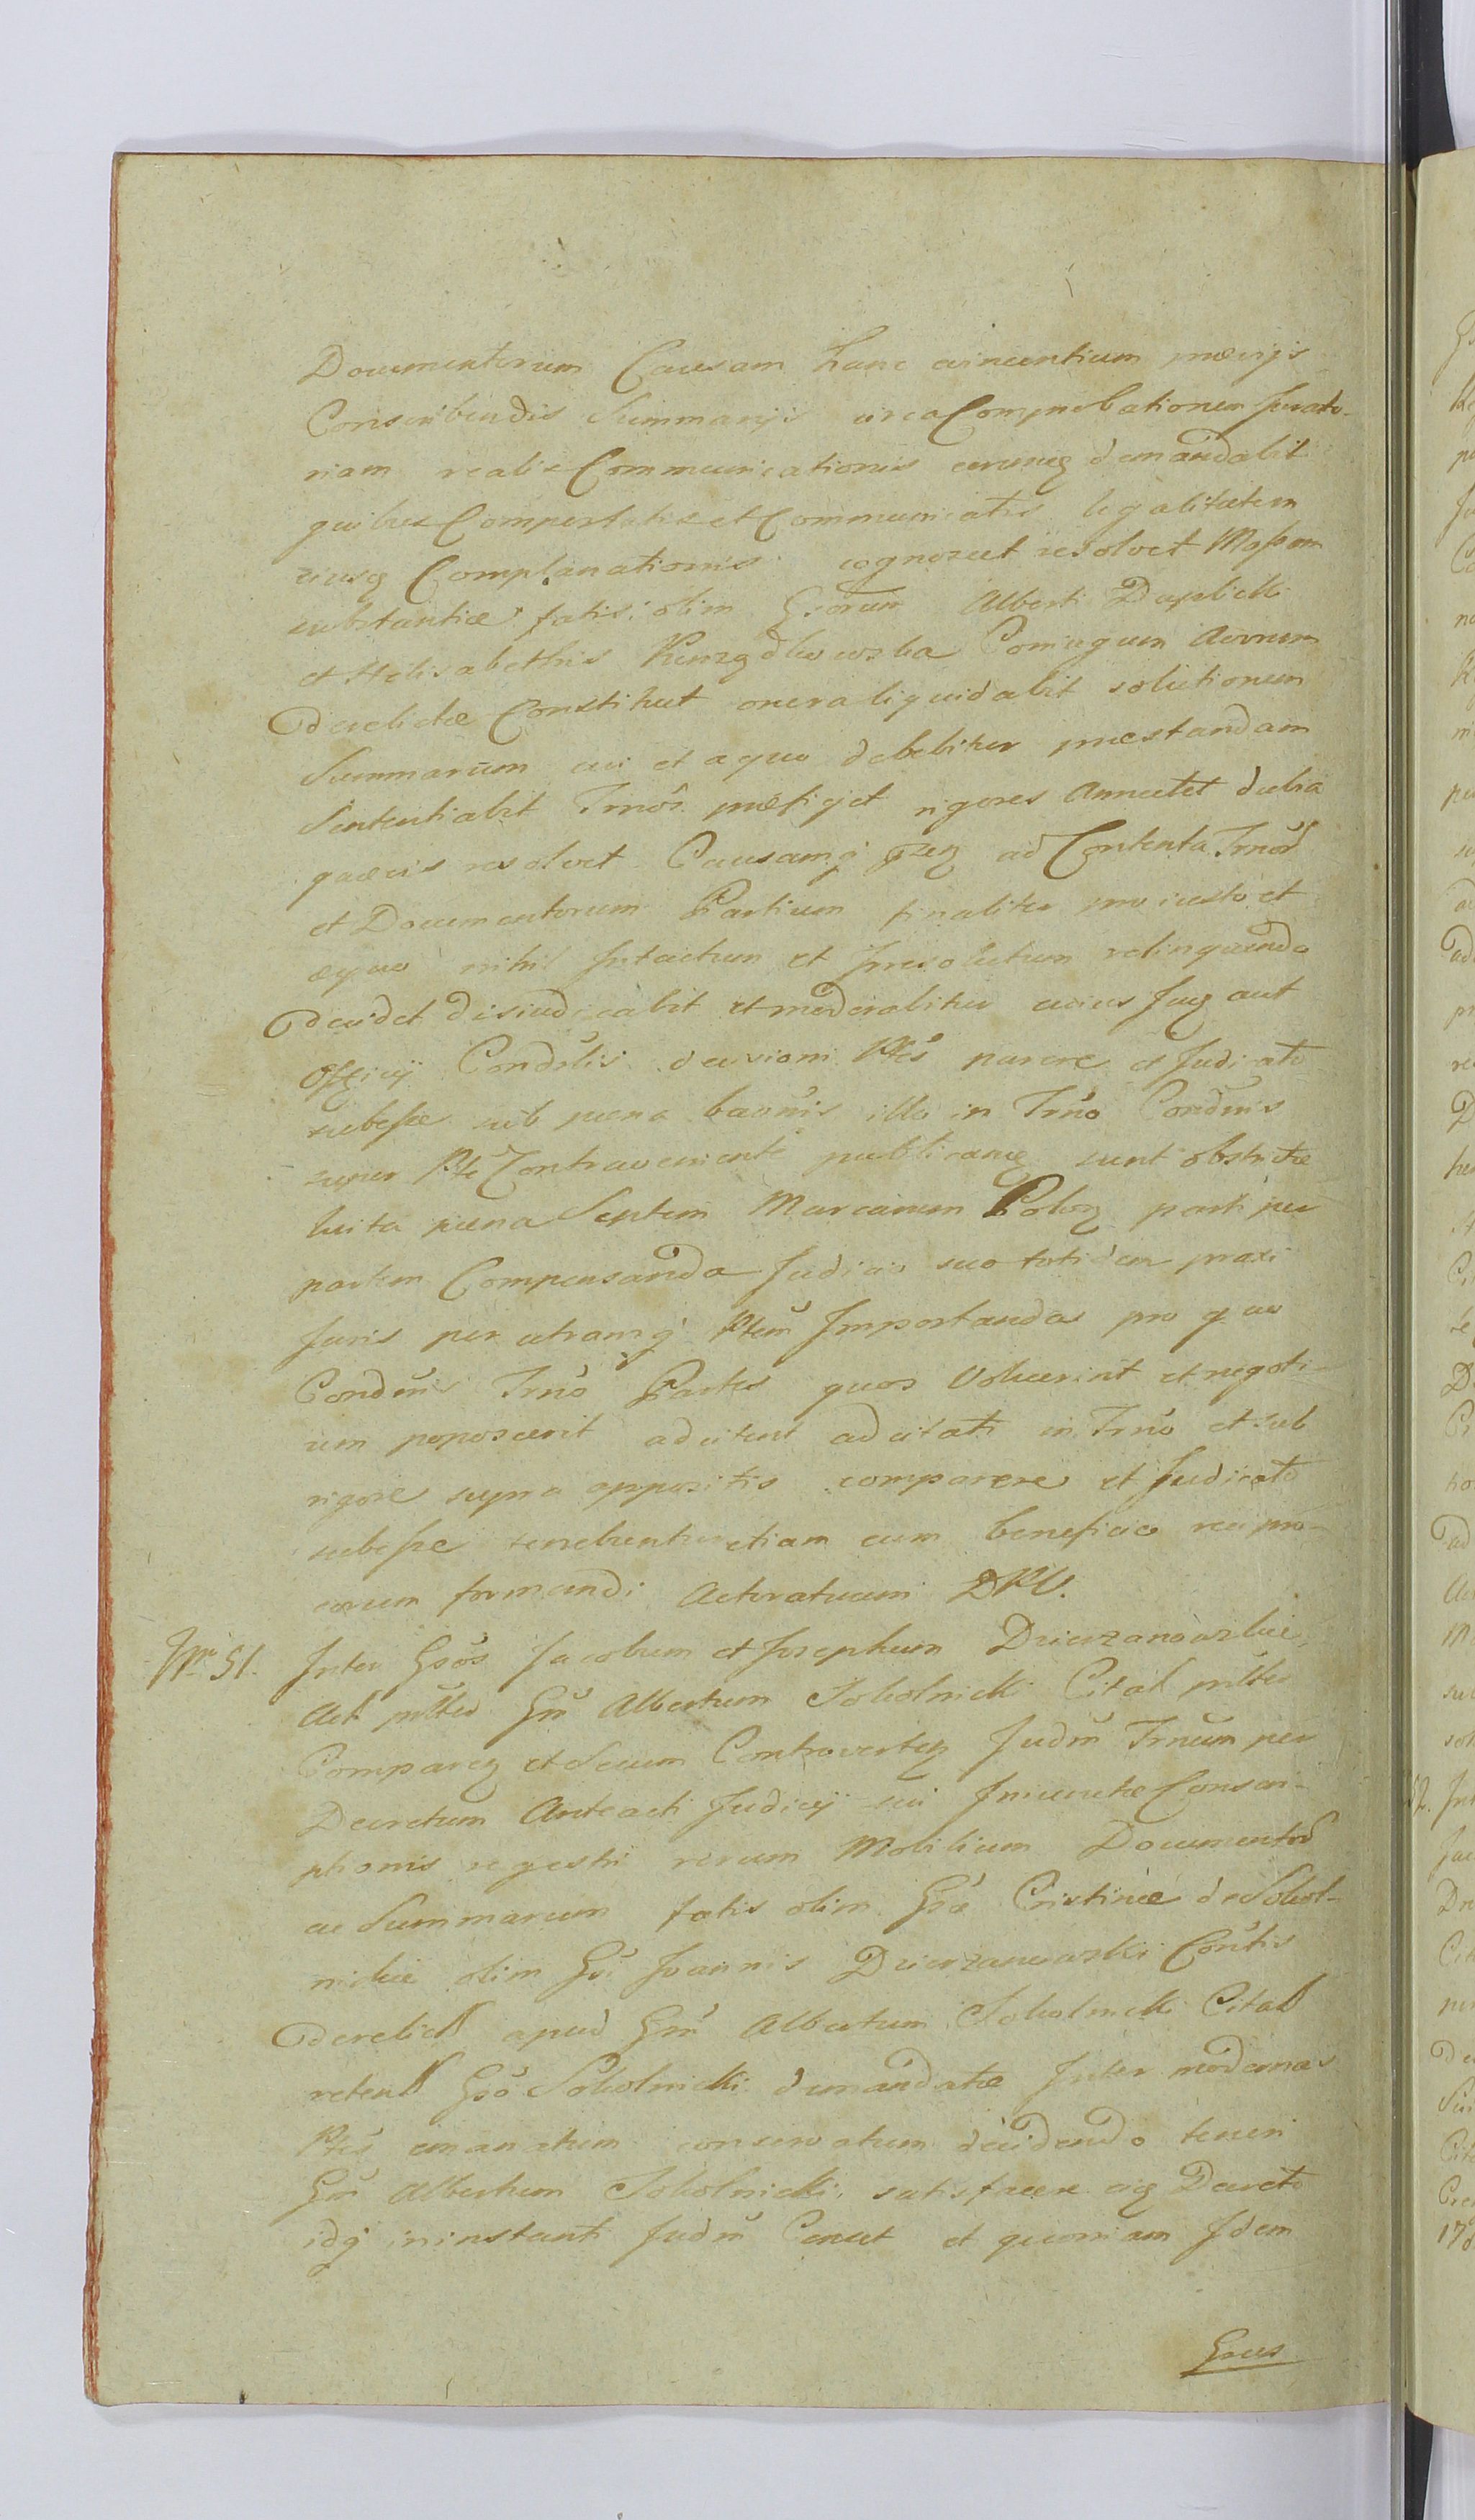 Documentorum Causam hanc evincentium prævijs
Conscribendis Summarijs circa Comprobationem Jurato-
riam realis Communicationis eorumq demandabit
quibus Comportatis et Communicatis legalitatem
eiusq Complanationis cognoscet resolvet Maßam
substantiæ fatis olim Gsorum Alberti Duplicki
et Helisabethis Conjugum
derelictæ Constituet onera liquidabit solutionem
Summarum cui et a quo debebitur præstandam
Sententiabit Trnos præfiget rigores Annectet dubia
quævis resolvet Causamq pnzem ad Contenta Trnor
et Documentorum Partium finaliter pro iusto et
æquo nihil Intactum et Irresolutum relinquendo
decidet disiudicabit et moderabitur cuius Juq aut
Officij Condelis decisioni Ptes parere et Judicato
subeße sub pæna bannis illo in Trno Condnis
super Pte Contraveniente publicanæ sunt obstrictæ
luita pæna Septem Marcarum Polon parti per
partem Compensanda Judicio suo totidem praxi
Juris per utramq Ptem Importandas pro quo
Condnis Trno Partes quos Voluerint et negoti-
um poposcerit adcitent adcitati in Trno et sub
rigore supra appositis comparere et Judicato
subeße tenebuntur etiam cum beneficio recipro-
corum formandi Actoratuum DPV.
Nro 51. Inter Gsos Jacobum et Josephum Dzierzanowskie
Act pultes Gsm Albertum Sokolnicki Citat pultes
Comparen et Secum Controverten Judm Trneum per
Decretum Anteacti Judicij sui Iniunctæ Conscri-
ptionis regestri rerum Mobilium Documentor
ac Summarum fatis olim Gsæ Cristinæ de Sokol-
nickie olim Gsi Joannis Dzierzanowski Contis
derelict apud Gsm Albertum Sokolnicki Citat
retent Gso Sokolnicki demandatæ Inter modernas
Ptes emanatum conservatum decidendo teneri
Gsm Albertum Sokolnicki satisfacere eiq Decreto
idq ininstanti Judm Censet et quoniam Idem
Gsus